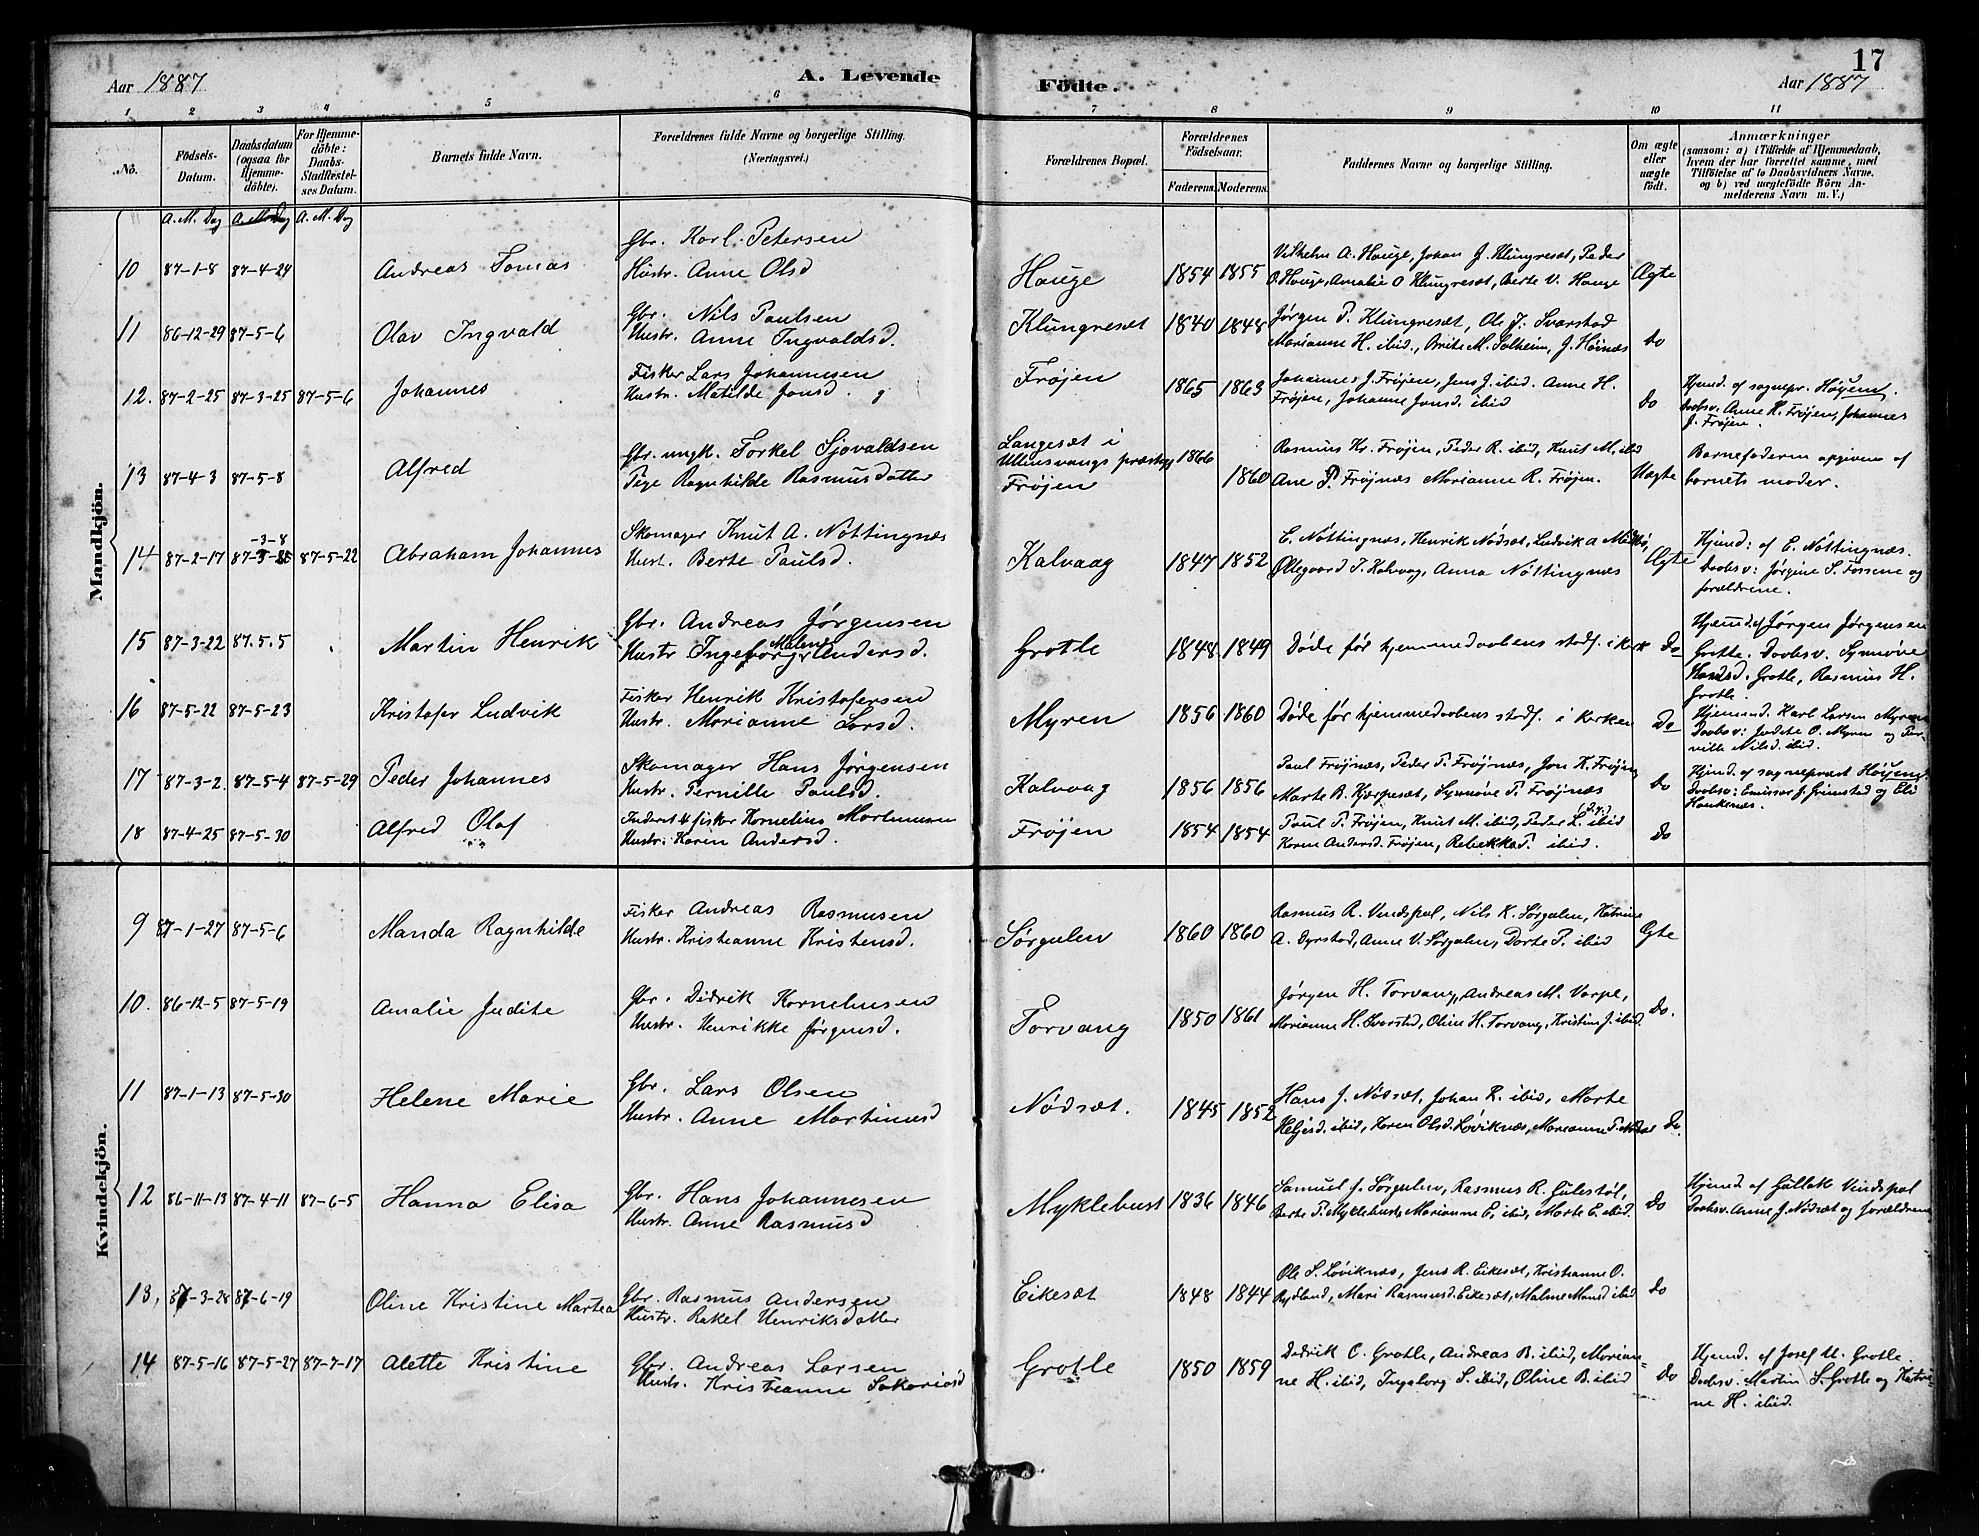 17
Aar 1887 A. Levende Födte. Aar 1887
1 2 3 4 5 6 7 8 9 10 11
No.
Födsels-
Datum.
Daabsdatum
(ogsaa for
Hjemme-
döbte).
For Hjemme-
döbte:
Daabs-
Stadfæstel-
ses Datum.
Barnets fulde Navn.
Forældrenes fulde Navne og borgerlige Stilling.
(Næringsvei.)
Forældrenes Bopæl.
Forældrenes
Födselsaar.
Faderens. Moderens.
Faddernes Navne og borgerlige Stilling.
Om ægte
eller
uægte
födt.
Anmærkninger
(saasom: a) i Tilfælde af Hjemmedaab,
hvem der har forrettet samme, med
Tilföielse af to Daabsvidners Navne,
og b) ved uægtefödte Börn An-
melderens Navn m.V.)
A. M. Dag A. M. Dag A. M. Dag
Mandkjön.
10 87-1-8 87-4-24 Andreas Tomas
Gbr. Karl Petersen
Hustr. Anne Olsd
Hauge 1854 1855
Vilhelm A. Hauge, Johan J. Klungresæt, Peder
O. Hauge, Amalie O Klungresæt, Berte V. Hauge
Ægte
11 86-12-29 87-5-6 Olav Ingvald
Gbr. Nils Paulsen
Hustr. Anne Ingvaldsd.
Klungresæt 1840 1848
Jørgen P. Klungresæt, Ole J. Svarstad
Marianne H. ibid., Brite M. Solheim, J. Høinæs
do
12. 87-2-25 87-3-25 87-5-6 Johannes
Fisker Lars Johannesen
Hustr. Matilde Jonsd.
Frøjen 1865 1863
Johannes J. Frøjen, Jens J. ibid. Anne H.
Frøjen, Johanne Jonsd. ibid
do
Hjemd. af sognepr. Høyem.
Daabsv. Anne H. Frøjen, Johannes
J. Frøjen.
13 87-4-3 87-5-8 Alfred
Gbr. ungk. Torkel Sjovaldsen
Pige Ragnhilde Rasmusdatter
Langesæt i
Ullensvangs præstegj
Frøjen
1866 1860
Rasmus Kr. Frøjen, Peder R. ibid, Knut M. ibid
Ane P. Frøjnæs Marianne R. Frøjen.
Uægte
Barnefaderen opgiven af
barnets moder.
14 87-2-17 87-3-8 87-5-22 Abraham Johannes
Skomager Knut A. Nøttingnæs
Hust. Berte Paulsd.
Kalvaag 1847 1852
E. Nøttingnæs, Henrik Nødset, Ludvik A
Ollegaard T. Kalvaag, Anna Nøttingnæs
Ægte
Hjemd: af E. Nøttingnæs.
Daabsv: Jørgine S. Fossene og
forældrene.
15 87-3-22 87.5.5 Martin Henrik
Gbr. Andreas Jørgensen
Hustr Ingeborg Malene Andersd.
Grotle 1848 1849
Døde før hjemmedaabens stadf. i kirk
Do
Hjemd. af Jørgen Jørgensen
Grotle. Daabsv. Synnøve
Hansd. Grotle, Rasmus H.
Grotle.
16 87-5-22 87-5-23 Kristofer Ludvik
Fisker Henrik Kristofersen
Hustr. Marianne Larsd.
Myren 1856 1860
Døde før hjemmedaabens stadf. i kirken
Do
Hjemmd. Karl Larsen Myren
Daabsv: Judite O. Myren og Per-
nille Nilsd. ibid.
17 87-3-2 87-5-4 87-5-29 Peder Johannes
Skomager Hans Jørgensen
Hustr. Pernille Paulsd.
Kalvaag 1856 1856
Paul Frøjnæs, Peder P. Frøjnæs, Jon K. Frøjen
Marte B. Hjørpesæt, Synnøve P. Frøjnæs
do
Hjemd. af sogneprest Høyem.
Daabsv: Emissær J. Grimstad og Eli
Haukenæs.
18 87-4-25 87-5-30 Alfred Olaf
Inderst & fisker Kornelius Martinusen
Hustr: Karin Andersd.
Frøjen 1854 1854
Paul P. Frøjen, Knut M. ibid, Peder L. ibid
Karen Andersd. Frøjen, Rebekka P. ibid.
do
Kvindekjön.
9 87-1-27 87-5-6 Manda Ragnhilde
Fisker Andreas Rasmusen
Hustr. Kristianne Kristensd.
Sørgulen 1860 1860
Rasmus R. Vindspol, Nils K. Sørgulen, Katrine
A. Dyrstad, Anne V. Sørgulen, Dorte P. ibid
Ægte
10. 86-12-5 87-5-19 Amalie Judite
Gbr. Didrik Korneliusen
Hustr. Henrikke Jørgensd.
Torvang 1850 1861
Jørgen H. Torvang, Andreas M. Varpe,
Marianne H. Sverstad, Oline H. Torvang, Kristine J. ibid.
Do.
11 87-1-13 87-5-30 Helene Marie
Gbr. Lars Olsen
Hustr. Anne Martinusd
Nødset. 1845 1852
Hans J. Nødset, Johan R. ibid, Marte
Heljesd. ibid, Karen Olsd. Løviknæs, Marianne P.
do.
12 86-11-13 87-4-11 87-6-5 Hanna Elisa
Gbr. Hans Johannesen
Hustr. Anne Rasmusd
Myklebust 1836 1846
Samuel J. Sørgulen, Rasmus R. Gulestøl,
Berte P. Myklebust, Marianne E, ibid, Marte E. ibid.
do
Hjemd af Gullak Vindspol
Daabsv. Anne J. Nødset og forældrene
13, 87-3-28 87-6-19 Oline Kristine Martea
Gbr. Rasmus Andersen
Hustr. Rakel Henriksdatter
Eikesæt 1848 1844
Ole S. Løviknæs, Jens R. Eikesæt, Kristianne O.
Rydland, Mari Rasmusd. Eikesæt, Malene Monsd ibid
do
14 87-5-16 87-5-27 87-7-17 Alette Kristine
Gbr. Andreas Larsen
Hustr. Kristianne Sakariasd
Grotle 1850 1859
Didrik C. Grotle, Andreas B. ibid, Marian-
ne H. ibid, Ingeborg S. ibid, Oline B. ibid
do
Hjemd. af Josef U. Grotle
Daabsv. Martin S. Grotle og Katri-
ne H. ibid.